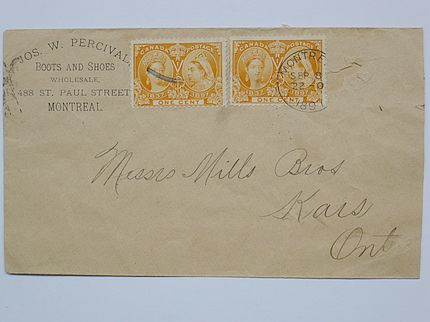 JOS. W. PERCIVAL,
BOOTS AND SHOES
WHOLESALE,
488 ST. PAUL STREET
MONTREAL
CANADA POSTAGE
1837 1897
ONE CENT
CANADA POSTAGE
1837 1897
ONE CENT
MONTRE
SEP
22
Messrs Mills Bros
Kars
Ont